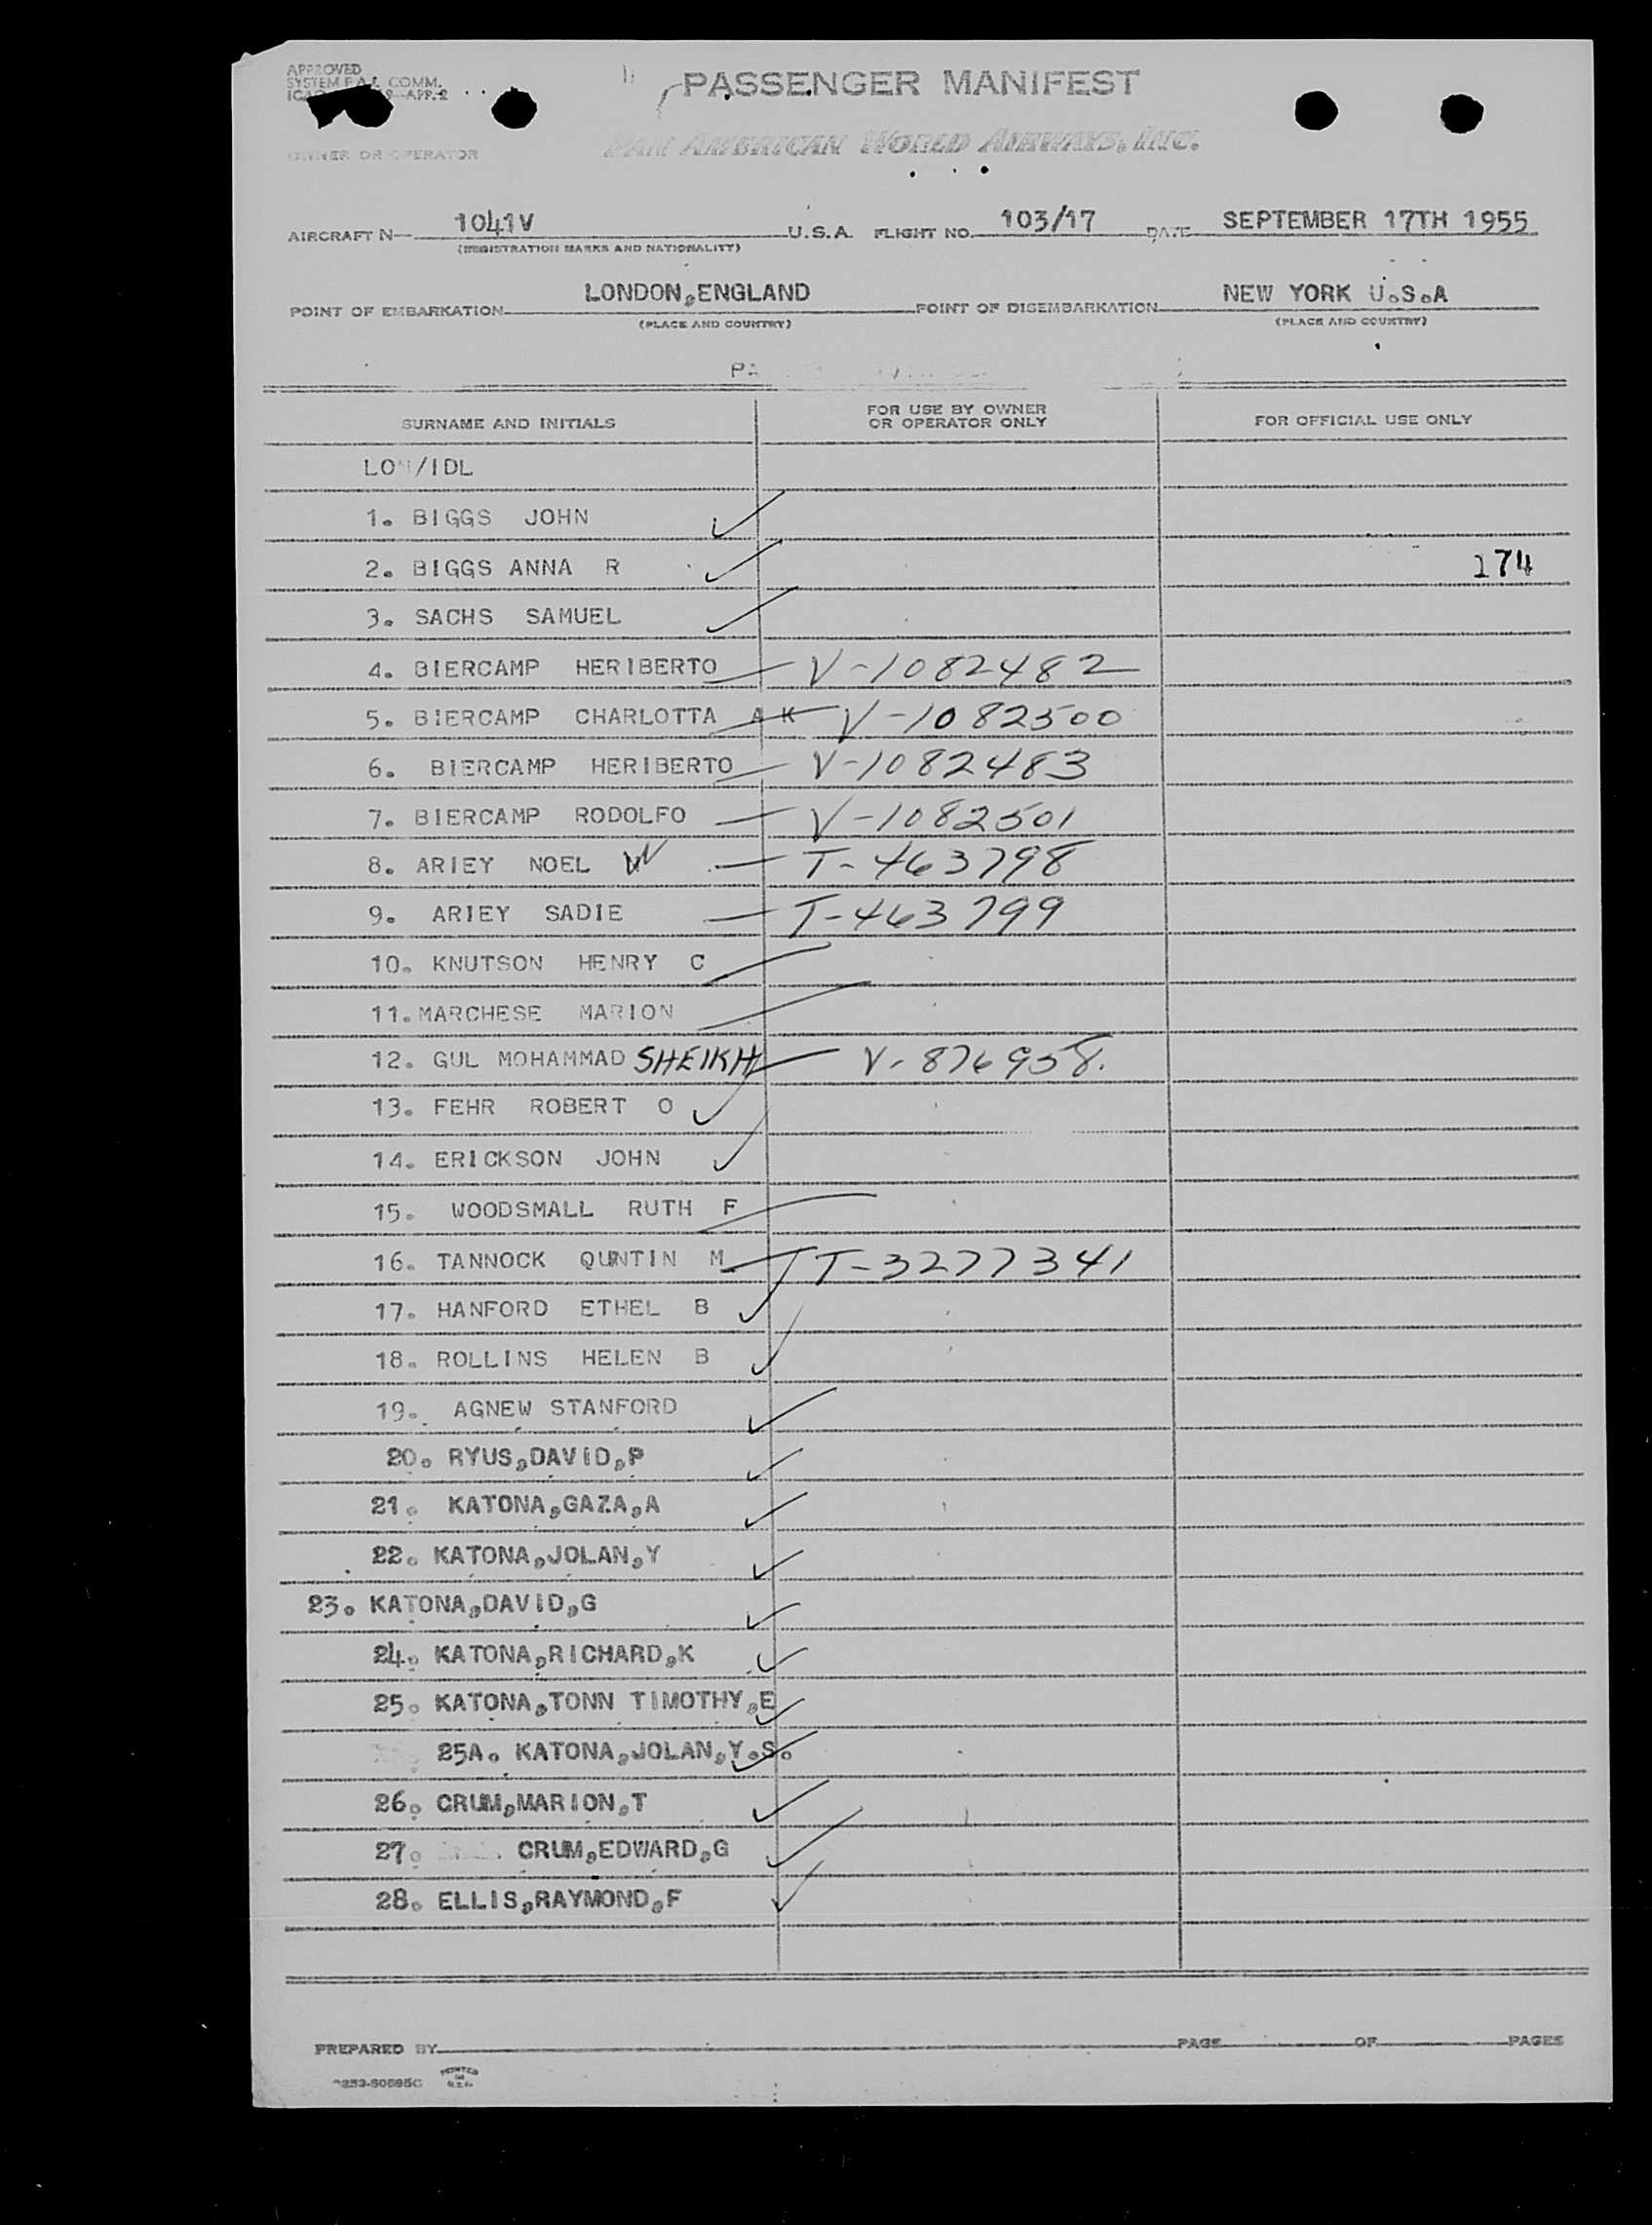 APPROVED
SYSTEM F.A.L COMM.
APP. 2
PASSENGER MANIFEST
OWNER OR OPERATOR
PAN AMERICAN WORLD AIRWAYS, INC.
AIRCRAFT N— 1041V U.S.A. FLIGHT NO. 103/17 DATE SEPTEMBER 17TH 1955
(REGISTRATION MARKS AND NATIONALITY)
POINT OF EMBARKATION LONDON,ENGLAND POINT OF DISEMBARKATION NEW YORK U.S.A
(PLACE AND COUNTRY) (PLACE AND COUNTRY)
SURNAME AND INITIALS FOR USE BY OWNER OR OPERATOR ONLY FOR OFFICIAL USE ONLY
LON/IDL
1. BIGGS JOHN
2. BIGGS ANNA R 174
3. SACHS SAMUEL
4. BIERCAMP HERIBERTO V-1082482
5. BIERCAMP CHARLOTTA A K V-1082500
6. BIERCAMP HERIBERTO V-1082483
7. BIERCAMP RODOLFO V-1082501
8. ARIEY NOEL W T-463798
9. ARIEY SADIE T-463799
10. KNUTSON HENRY C
11. MARCHESE MARION
12. GUL MOHAMMAD SHEIKH V-876958.
13. FEHR ROBERT O
14. ERICKSON JOHN
15. WOODSMALL RUTH F
16. TANNOCK QUNTIN M T-3277341
17. HANFORD ETHEL B
18. ROLLINS HELEN B
19. AGNEW STANFORD
20. RYUS,DAVID,P
21. KATONA,GAZA,A
22. KATONA,JOLAN,Y
23. KATONA,DAVID,G
24. KATONA,RICHARD,K
25. KATONA,TONN TIMOTHY,E
25A. KATONA,JOLAN,Y.S.
26. CRUM,MARION,T
27. CRUM,EDWARD,G
28. ELLIS,RAYMOND,F
PREPARED BY PAGE OF PAGES
PRINTED IN U.S.A.